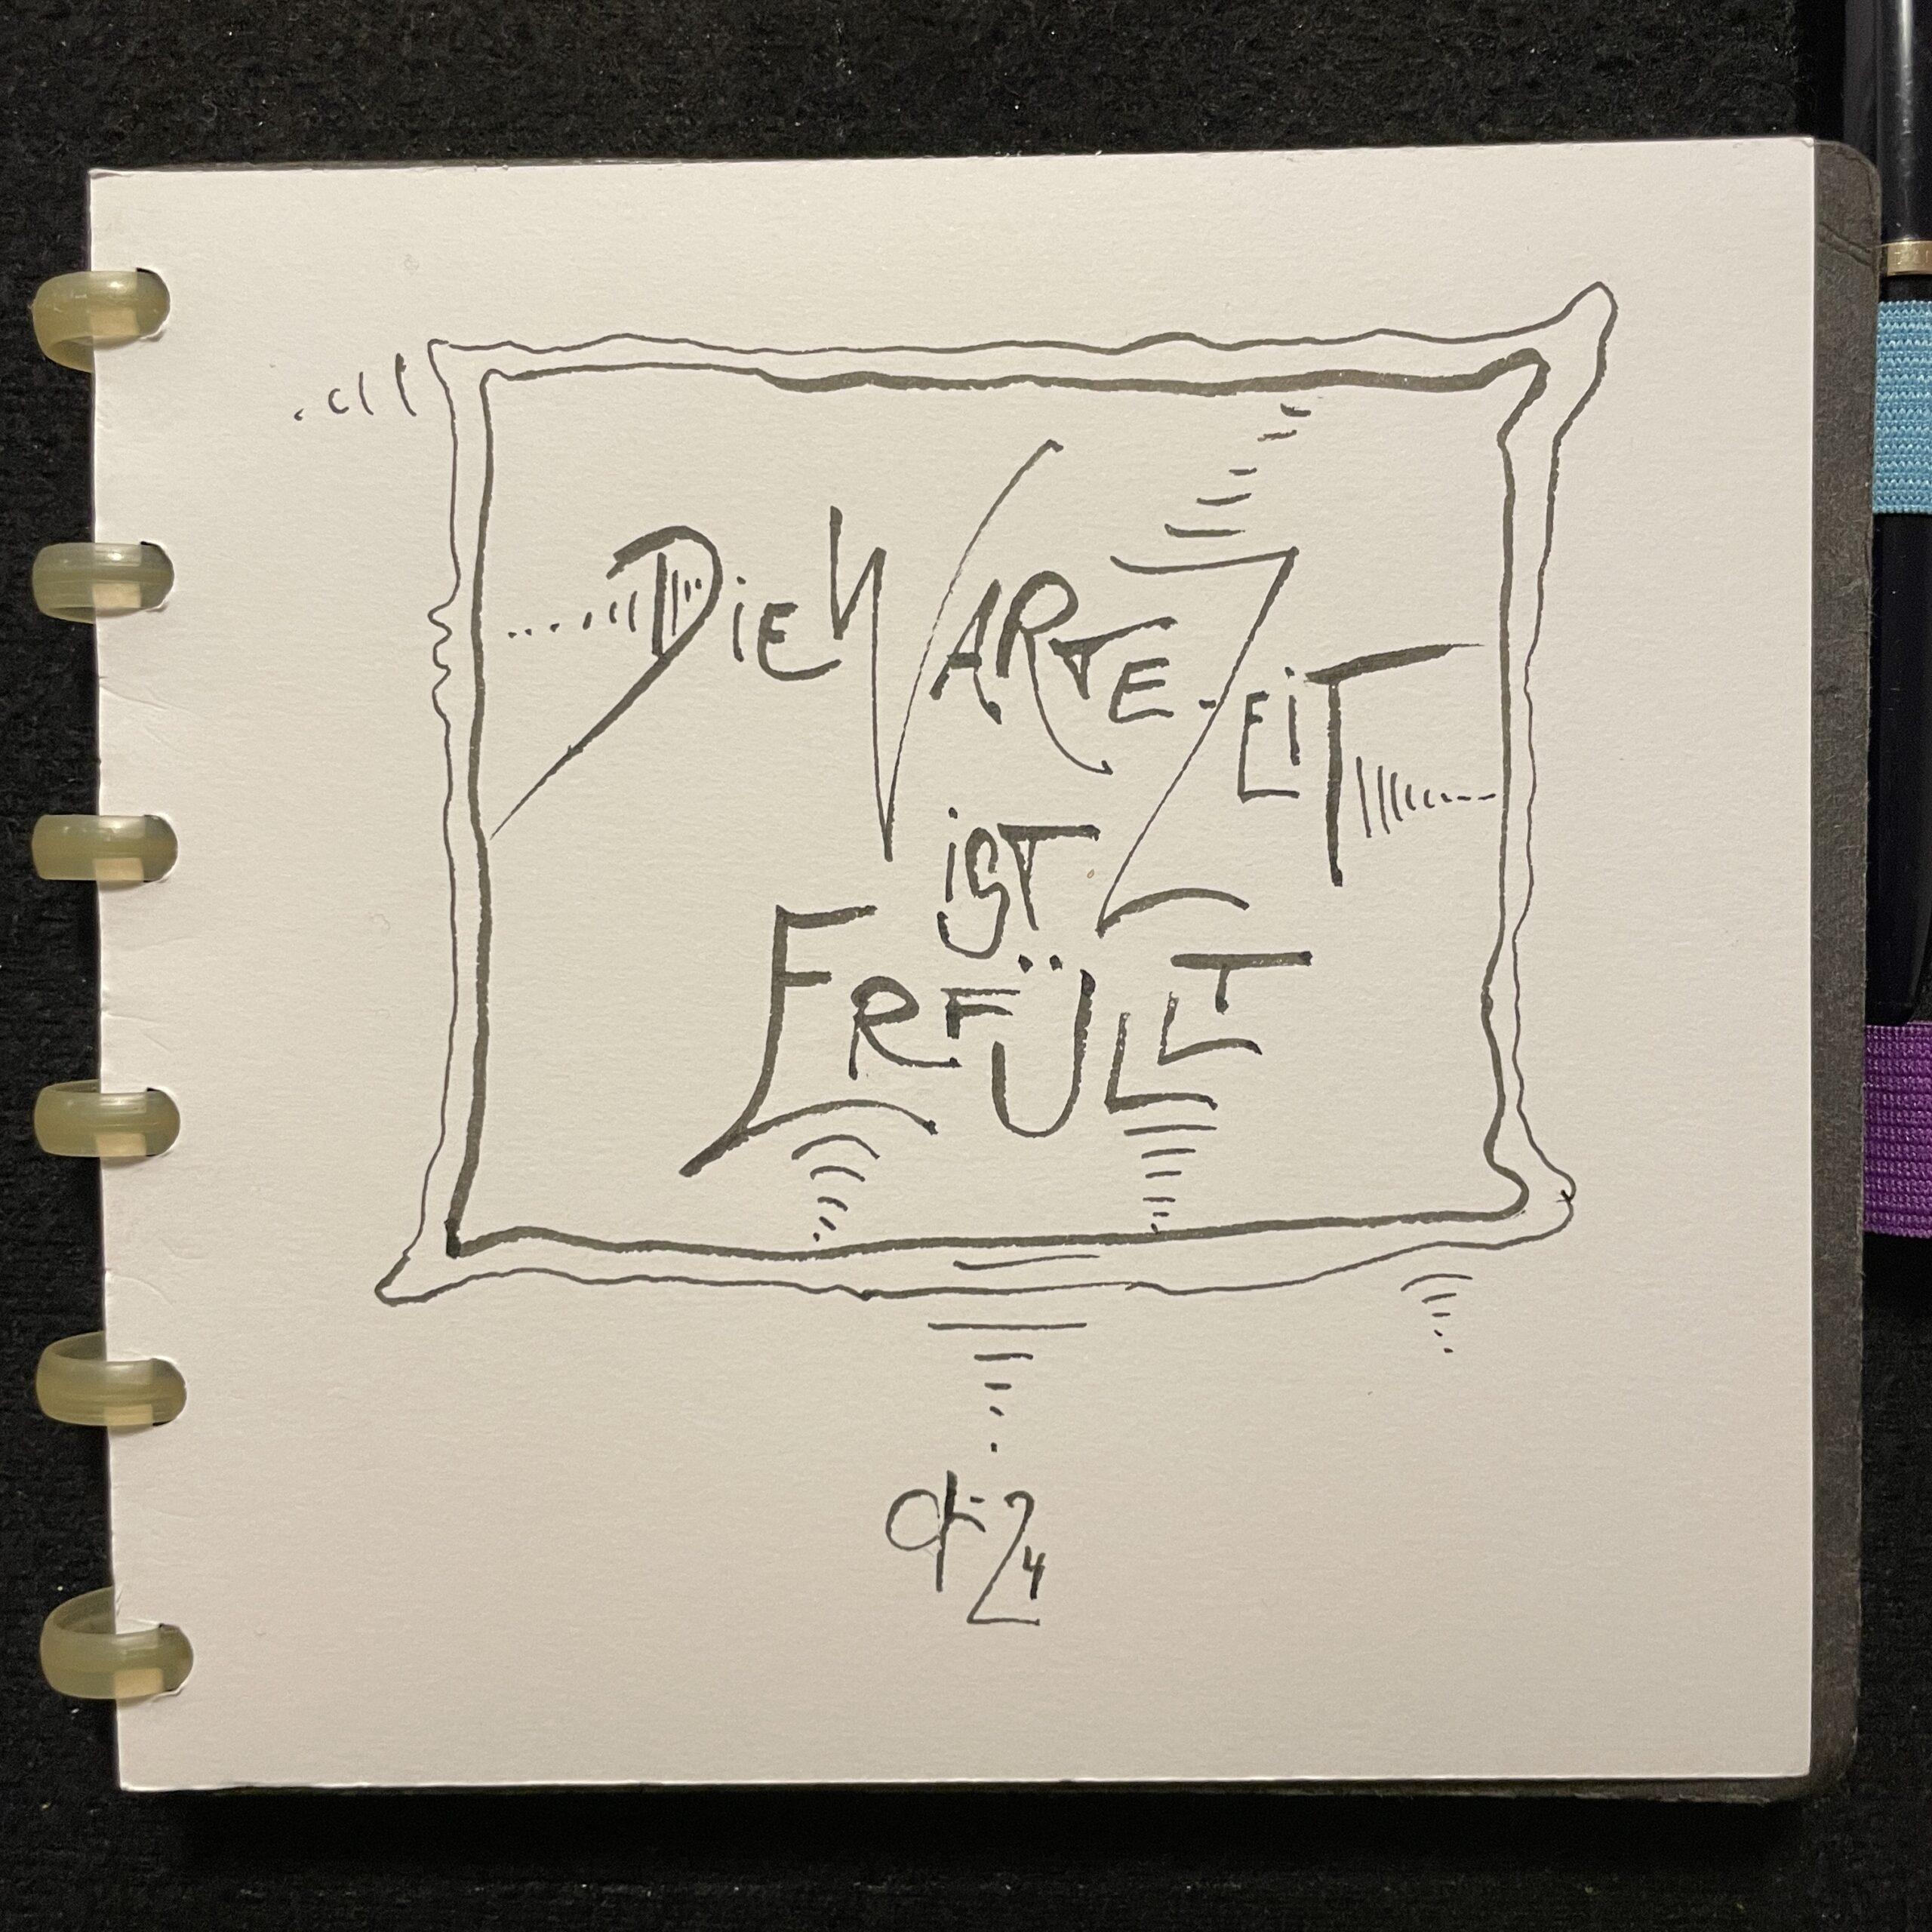 Die WARTE-ZEiT
iST
ERFÜLLT
24